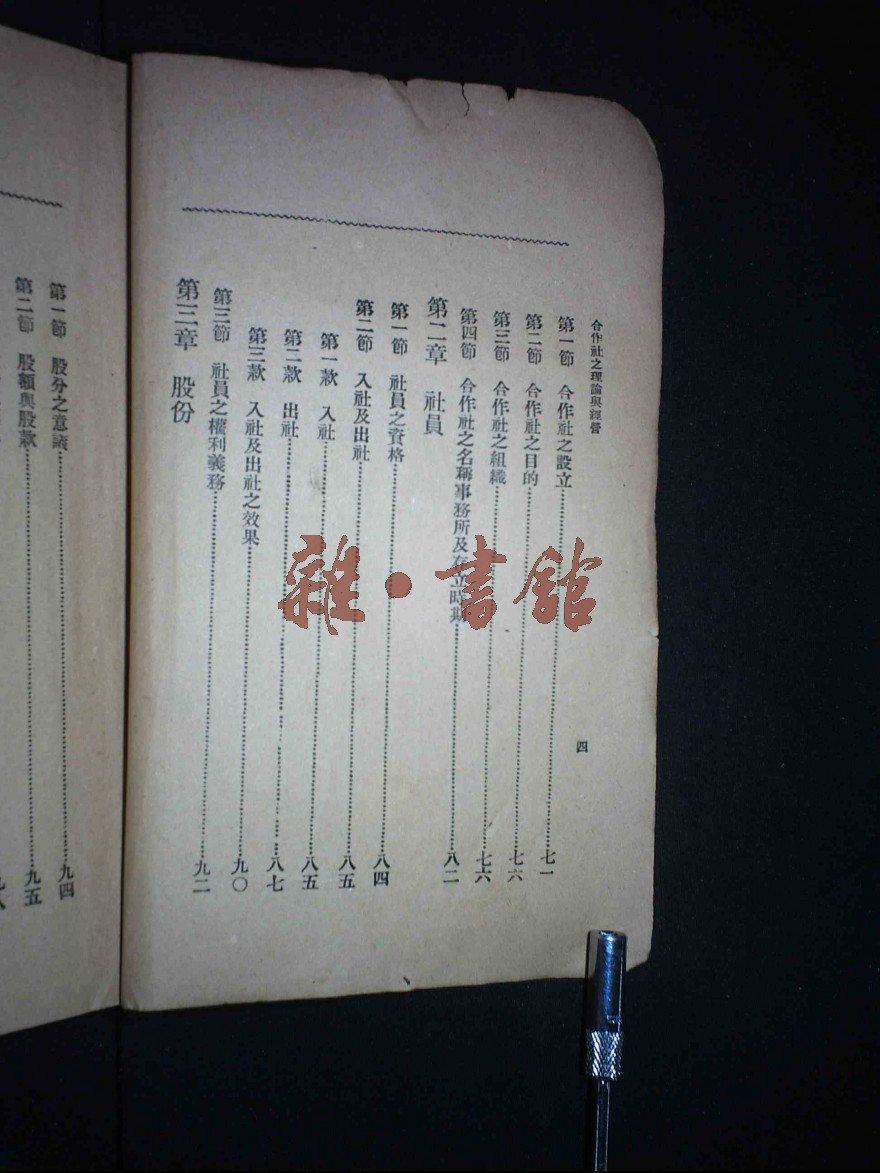 合作社之理論與經營
四
第一節　合作社之設立……七一
第二節　合作社之目的……七六
第三節　合作社之組織……七六
第四節　合作社之名稱事務所及存立時期……八二
第二章　社員
第一節　社員之資格……八四
第二節　入社及出社……八五
第一款　入社……八五
第二款　出社……八七
第三款　入社及出社之效果……九〇
第三節　社員之權利義務……九二
第三章　股份
第一節　股分之意議……九四
第二節　股額與股款……九五
雜・書館